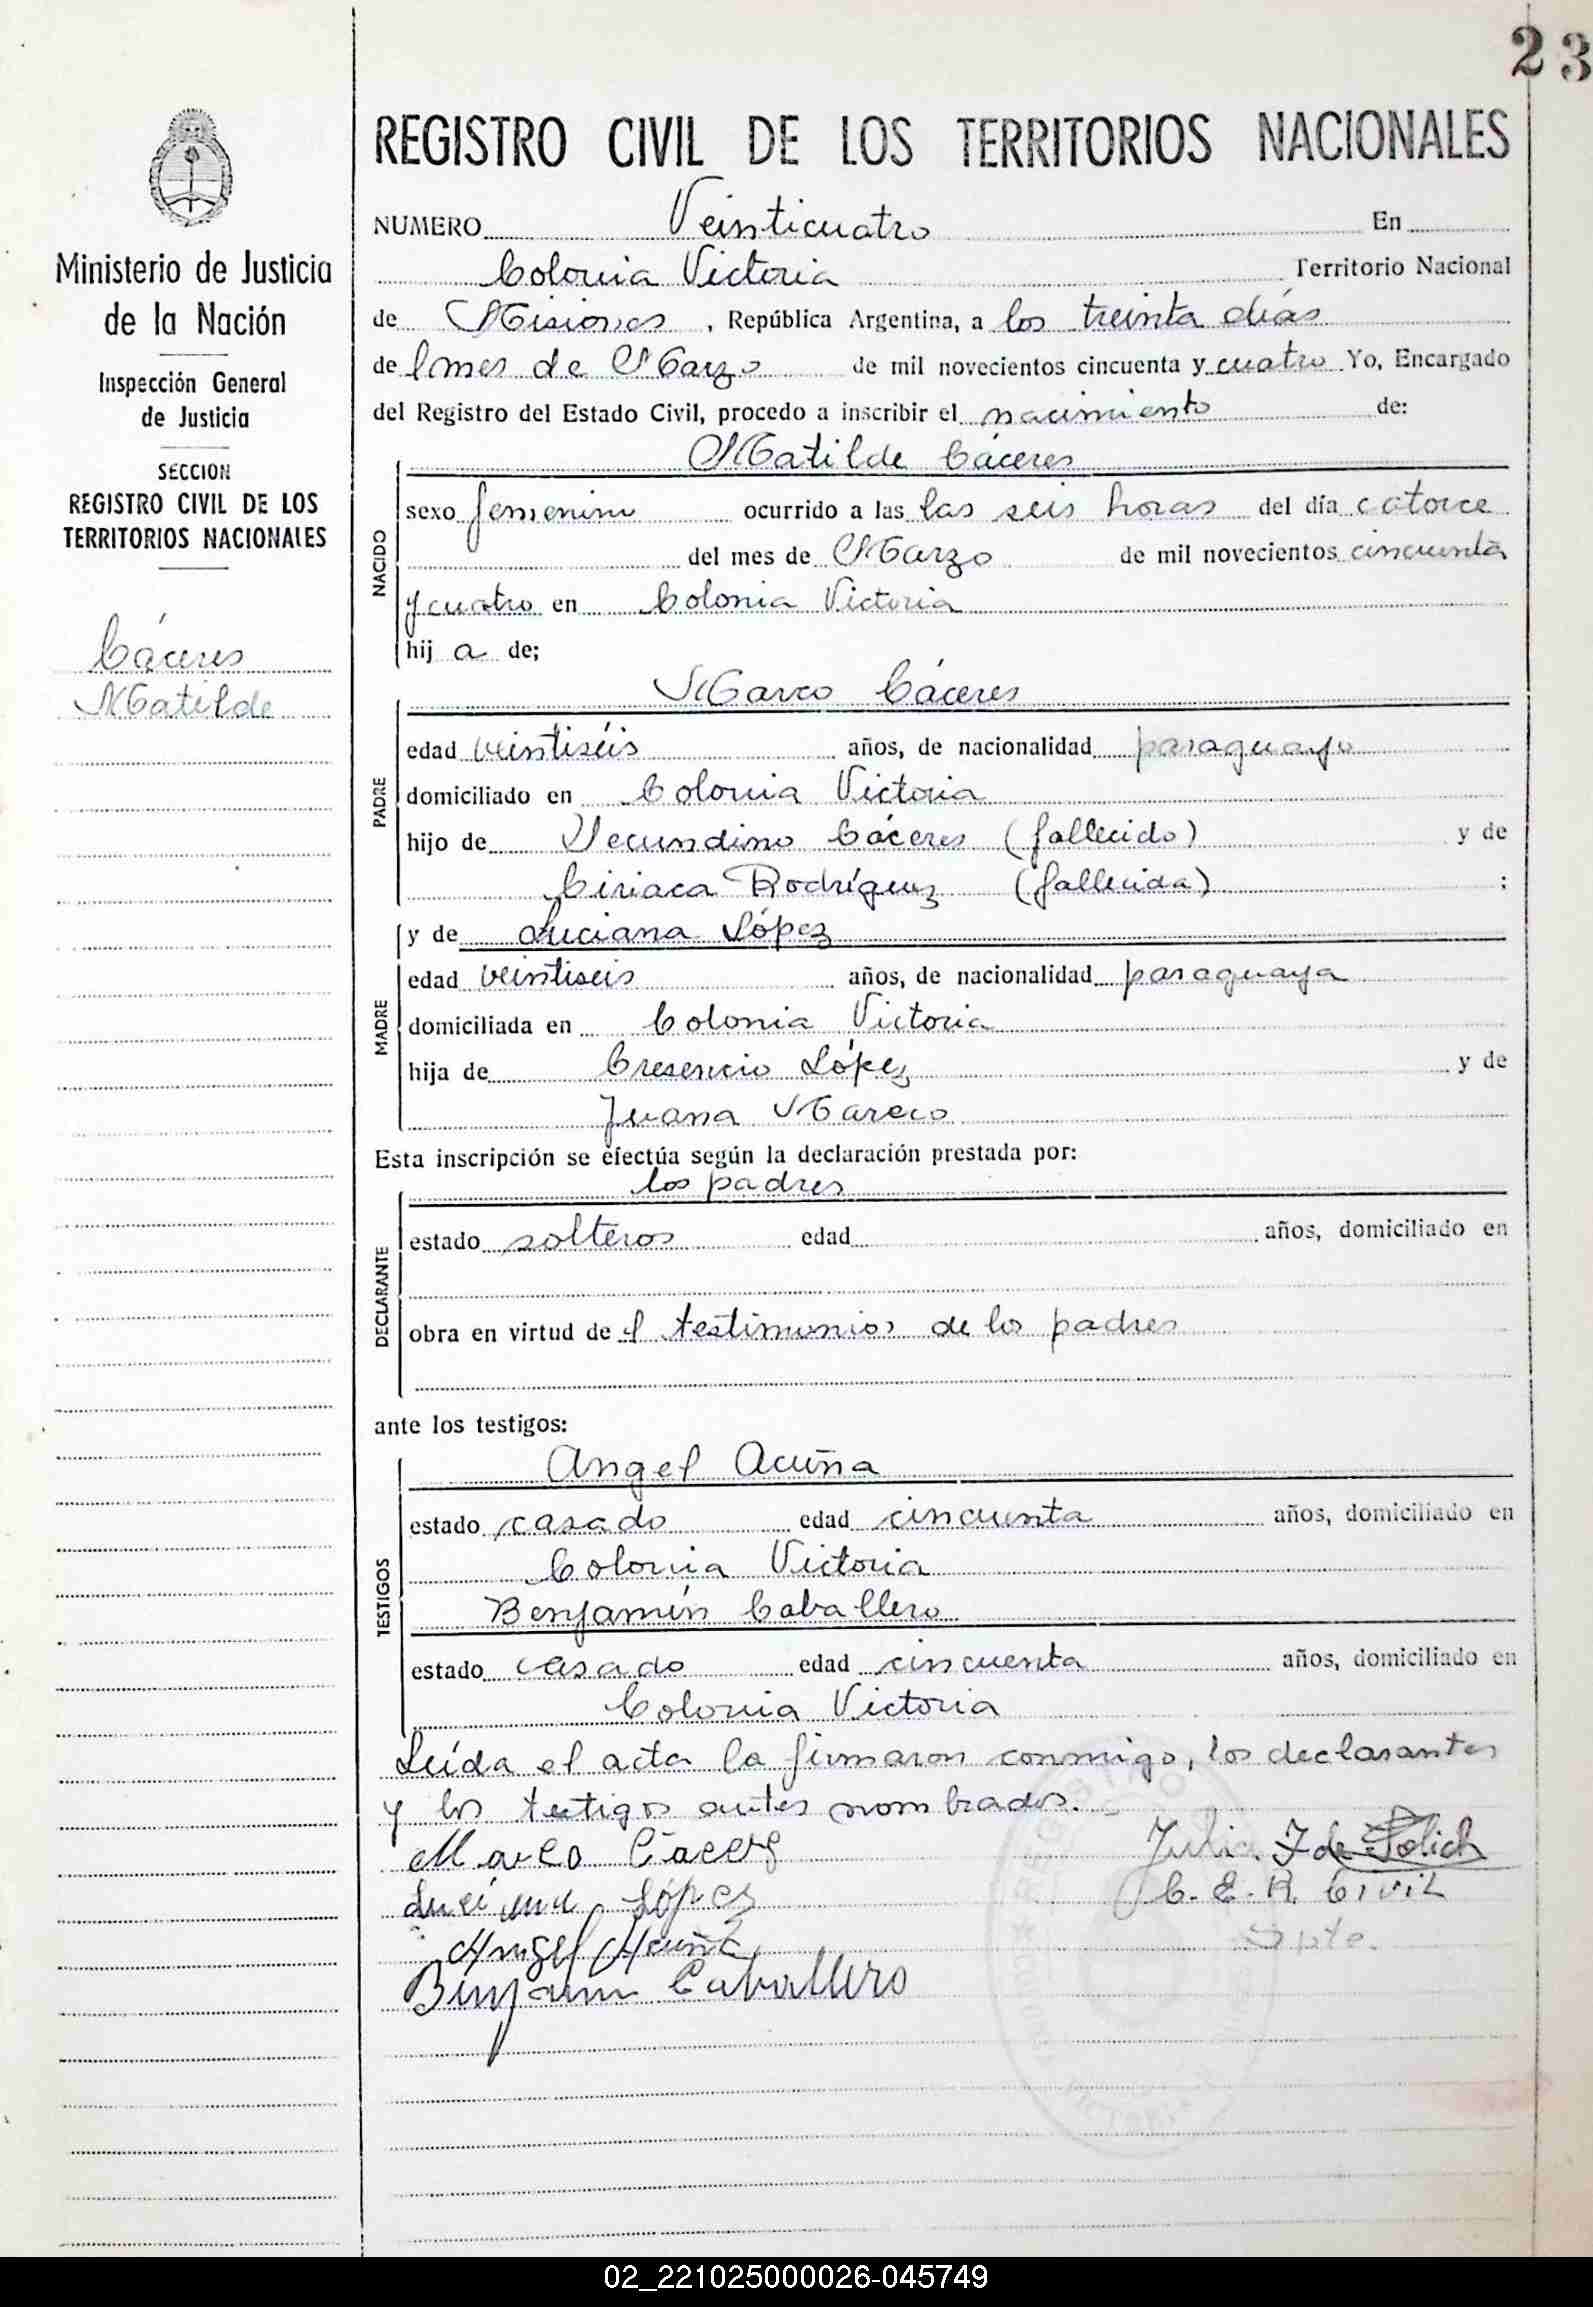 23
REGISTRO CIVIL DE LOS TERRITORIOS NACIONALES
Ministerio de Justicia
de la Nación
Inspección General
de Justicia
SECCION
REGISTRO CIVIL DE LOS
TERRITORIOS NACIONALES
Cáceres
Matilde
NUMERO Veinticuatro En
Colonia Victoria Territorio Nacional
de Misiones, República Argentina, a los treinta días
del mes de Marzo de mil novecientos cincuenta y cuatro Yo, Encargado
del Registro del Estado Civil, procedo a inscribir el nacimiento de:
NACIDO
Matilde Cáceres
sexo femenino ocurrido a las las seis horas del día catorce
del mes de Marzo de mil novecientos cincuenta
y cuatro en Colonia Victoria
hij a de;
PADRE
Marco Cáceres
edad veintiséis años, de nacionalidad paraguayo
domiciliado en Colonia Victoria
hijo de Secundino Cáceres (fallecido) y de
Ciriaca Rodríguez (fallecida) ;
MADRE
y de Luciana López
edad veintiseis años, de nacionalidad paraguaya
domiciliada en Colonia Victoria
hija de Cresencio López y de
Juana Mareco
Esta inscripción se efectúa según la declaración prestada por:
DECLARANTE
los padres
estado solteros edad años, domiciliado en
obra en virtud de l testimonios de los padres
ante los testigos:
TESTIGOS
Angel Acuña
estado casado edad cincuenta años, domiciliado en
Colonia Victoria
Benjamín Caballero
estado casado edad cincuenta años, domiciliado en
Colonia Victoria
Leída el acta la firmaron conmigo, los declarantes
y los testigos antes nombrados.
Marco Cáceres Julia J de Polich
Luciana López C. E. R. Civil
Angel Acuña Spte.
Benjamin Caballero
02_221025000026-045749